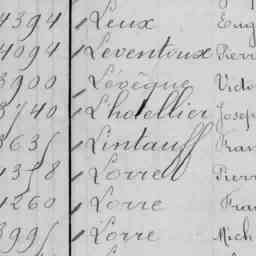 4394 Leux Eug
4094 Leventoux Pierr
3900 Lévêque Victo
3740 Lhotellier Josep
363 Lintauff Fran
1358 Lorre Pierr
1260 Lorre Fra
399 Lorre Mich